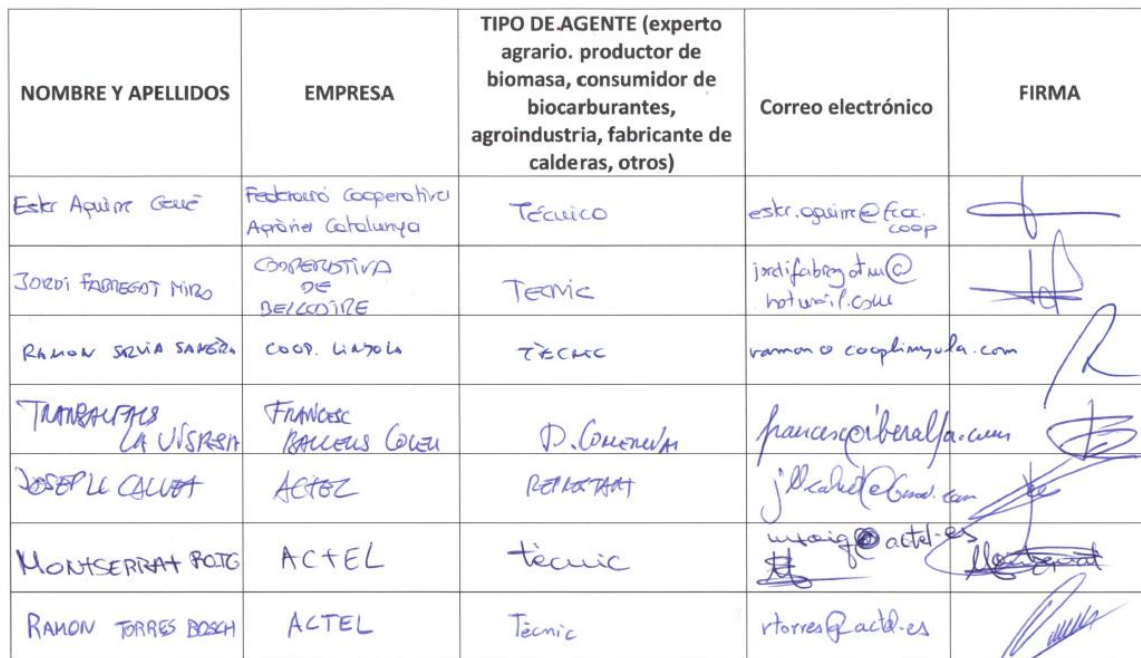 NOMBRE Y APELLIDOS
EMPRESA
TIPO DE AGENTE (experto
agrario. productor de
biomasa, consumidor de
biocarburantes,
agroindustria, fabricante de
calderas, otros)
Correo electrónico
FIRMA
Ester Aguirre
Federació Cooperativa
Agrària Catalunya
Técnico
ester.aguirre@fcac.
coop
JORDI FABREGAT MIRO
COOPERATIVA
DE
BELLCAIRE
Tecnic
jordifabregatm@
hotmail.com
RAMON
COOP. LINYOLA
TÈCNIC
ramon@cooplinyola.com
TRANSALFALS
LA VISPESA
FRANCESC
D. COMERCIAL
francesc@iberalfa.com
JOSEP LL CALVET
ACTEL
MONTSERRAT ROIG
ACTEL
tècnic
mroig@actel.es
Montserrat
RAMON TORRES BOSCH
ACTEL
Tècnic
rtorres@actel.es